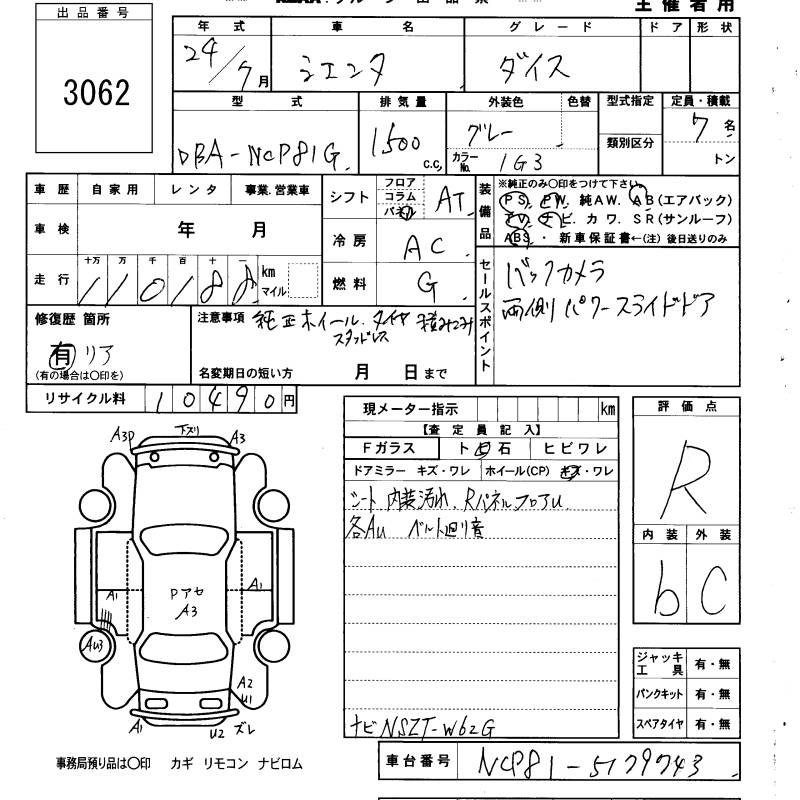 出品番号
3062
主催者用
年式 車名 グレード ドア 形状
24/7月 シエンタ ダイス
型式 排気量 外装色 色替 型式指定 定員・積載
DBA-NCP81G 1500 c.c. グレー 類別区分 7名
カラーNo. 1G3 トン
車歴 自家用 レンタ 事業.営業車
車検 年 月
走行 十万 万 千 百 十 一
110188 km マイル
シフト フロア コラム パネル AT
冷房 AC
燃料 G
装備品
※純正のみ○印をつけて下さい。
PS. PW. 純AW. AB(エアバック)
TV. ナビ. カワ. SR(サンルーフ)
ABS. ・ 新車保証書←(注) 後日送りのみ
セールスポイント
バックカメラ
両側パワースライドドア
修復歴 箇所
有 リア
(有の場合は○印を)
注意事項 純正ホイール.タイヤ 積みこみ
スタッドレス
名変期日の短い方 月 日まで
リサイクル料 10490円
現メーター指示 km
【査定員記入】
Fガラス ト 石 ヒビワレ
ドアミラー キズ・ワレ ホイール(CP) キズ・ワレ
シート 内装汚れ. Rパネルフロアu
各Au ベルト廻り音
ナビ NSZT-W62G
車台番号 NCP81-5179743
評価点
R
内装 外装
b C
ジャッキ工具 有・無
パンクキット 有・無
スペアタイヤ 有・無
A3P 下スリ A3
A1 A1
Pアセ
A3
Au3
A2
U1
A1 U2 ズレ
事務局預り品は○印 カギ リモコン ナビロム